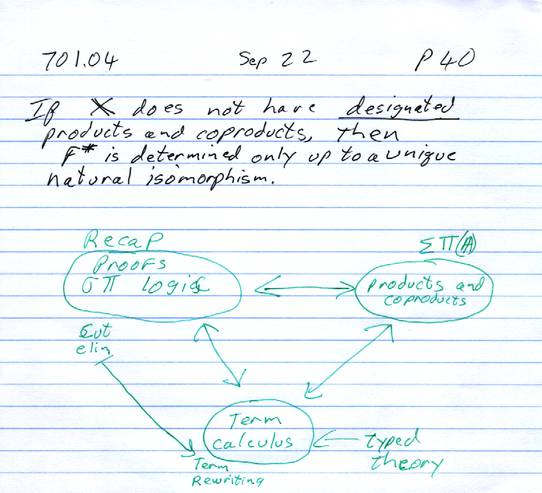 701.04 Sep 22 P 40
If X does not have designated
products and coproducts, then
F* is determined only up to a unique
natural isomorphism.
Recap
Proofs
σπ logic
ΣΠ(A)
products and
coproducts
Cut
elim
Term
calculus
typed
theory
Term
Rewriting